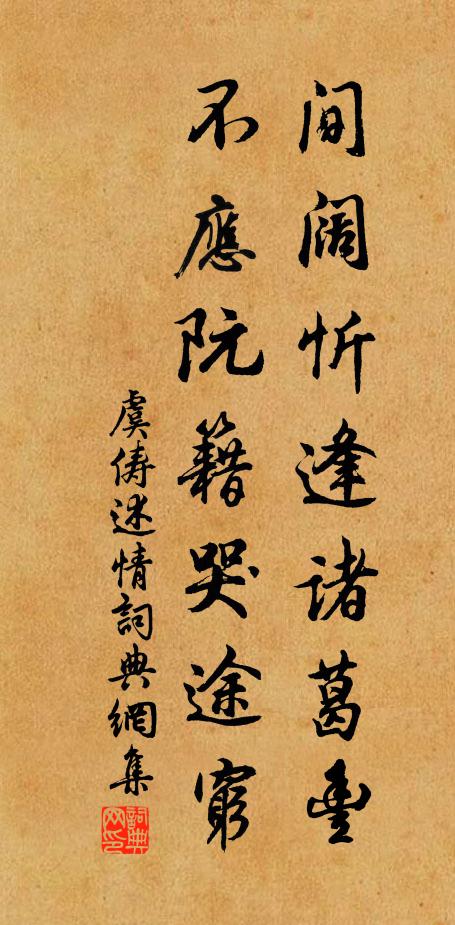 间阔忻逢诸葛豊
不應阮籍哭途窮
虞俦述情詞典網集
詞典网印